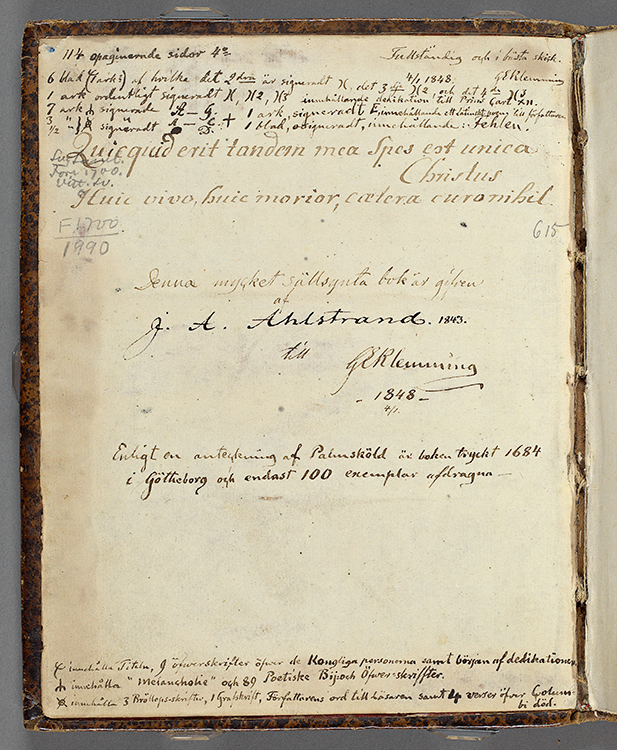 114 opaginerade sidor 4º Fullständig och i bästa skick.
4/1 1848. GEKlemming
6 blad (¾ ark) af hvilke det 2dra är signeradt )(, det 3dje )(2, och det 4de )(3.
1 ark ordentligt signeradt )(, )(2, )(3 innehållande dedikation till Prins Carl XII.
7 ark signerade A–G. + 1 ark, signeradt E, innehållande ett till författaren
3 " signeradt A–C. + 1 blad, osignerad, innehållande: Fehlen.
½ " D.
Quicquid erit tandem mea Spes est unica
Christus
Huic vivo, huic morior, cætera curo nihil.
Sv. Saml.
Förf. 1700.
Vitt. Sv.
F1700
1990
615
Denna mycket sällsynta bok är gifven
af
J. A. Ahlstrand. 1843.
till
GEKlemming
– 1848 –
4/1.
Enligt en anteckning af Palmsköld är boken tryckt 1684
i Götheborg och endast 100 exemplar afdragna –
innehålla Titeln, 9 öfwerskrifter öfwer de Kongliga personerna samt början af dedikationen.
innehålla "Melancholie" och 89 Poetiske Bij och Öfwer-skriffter.
innehålla 3 Bröllops-skrifter, 1 Grafskrift, Författarens ord till läsaren samt 4 verser öfver Colum-
bi död.